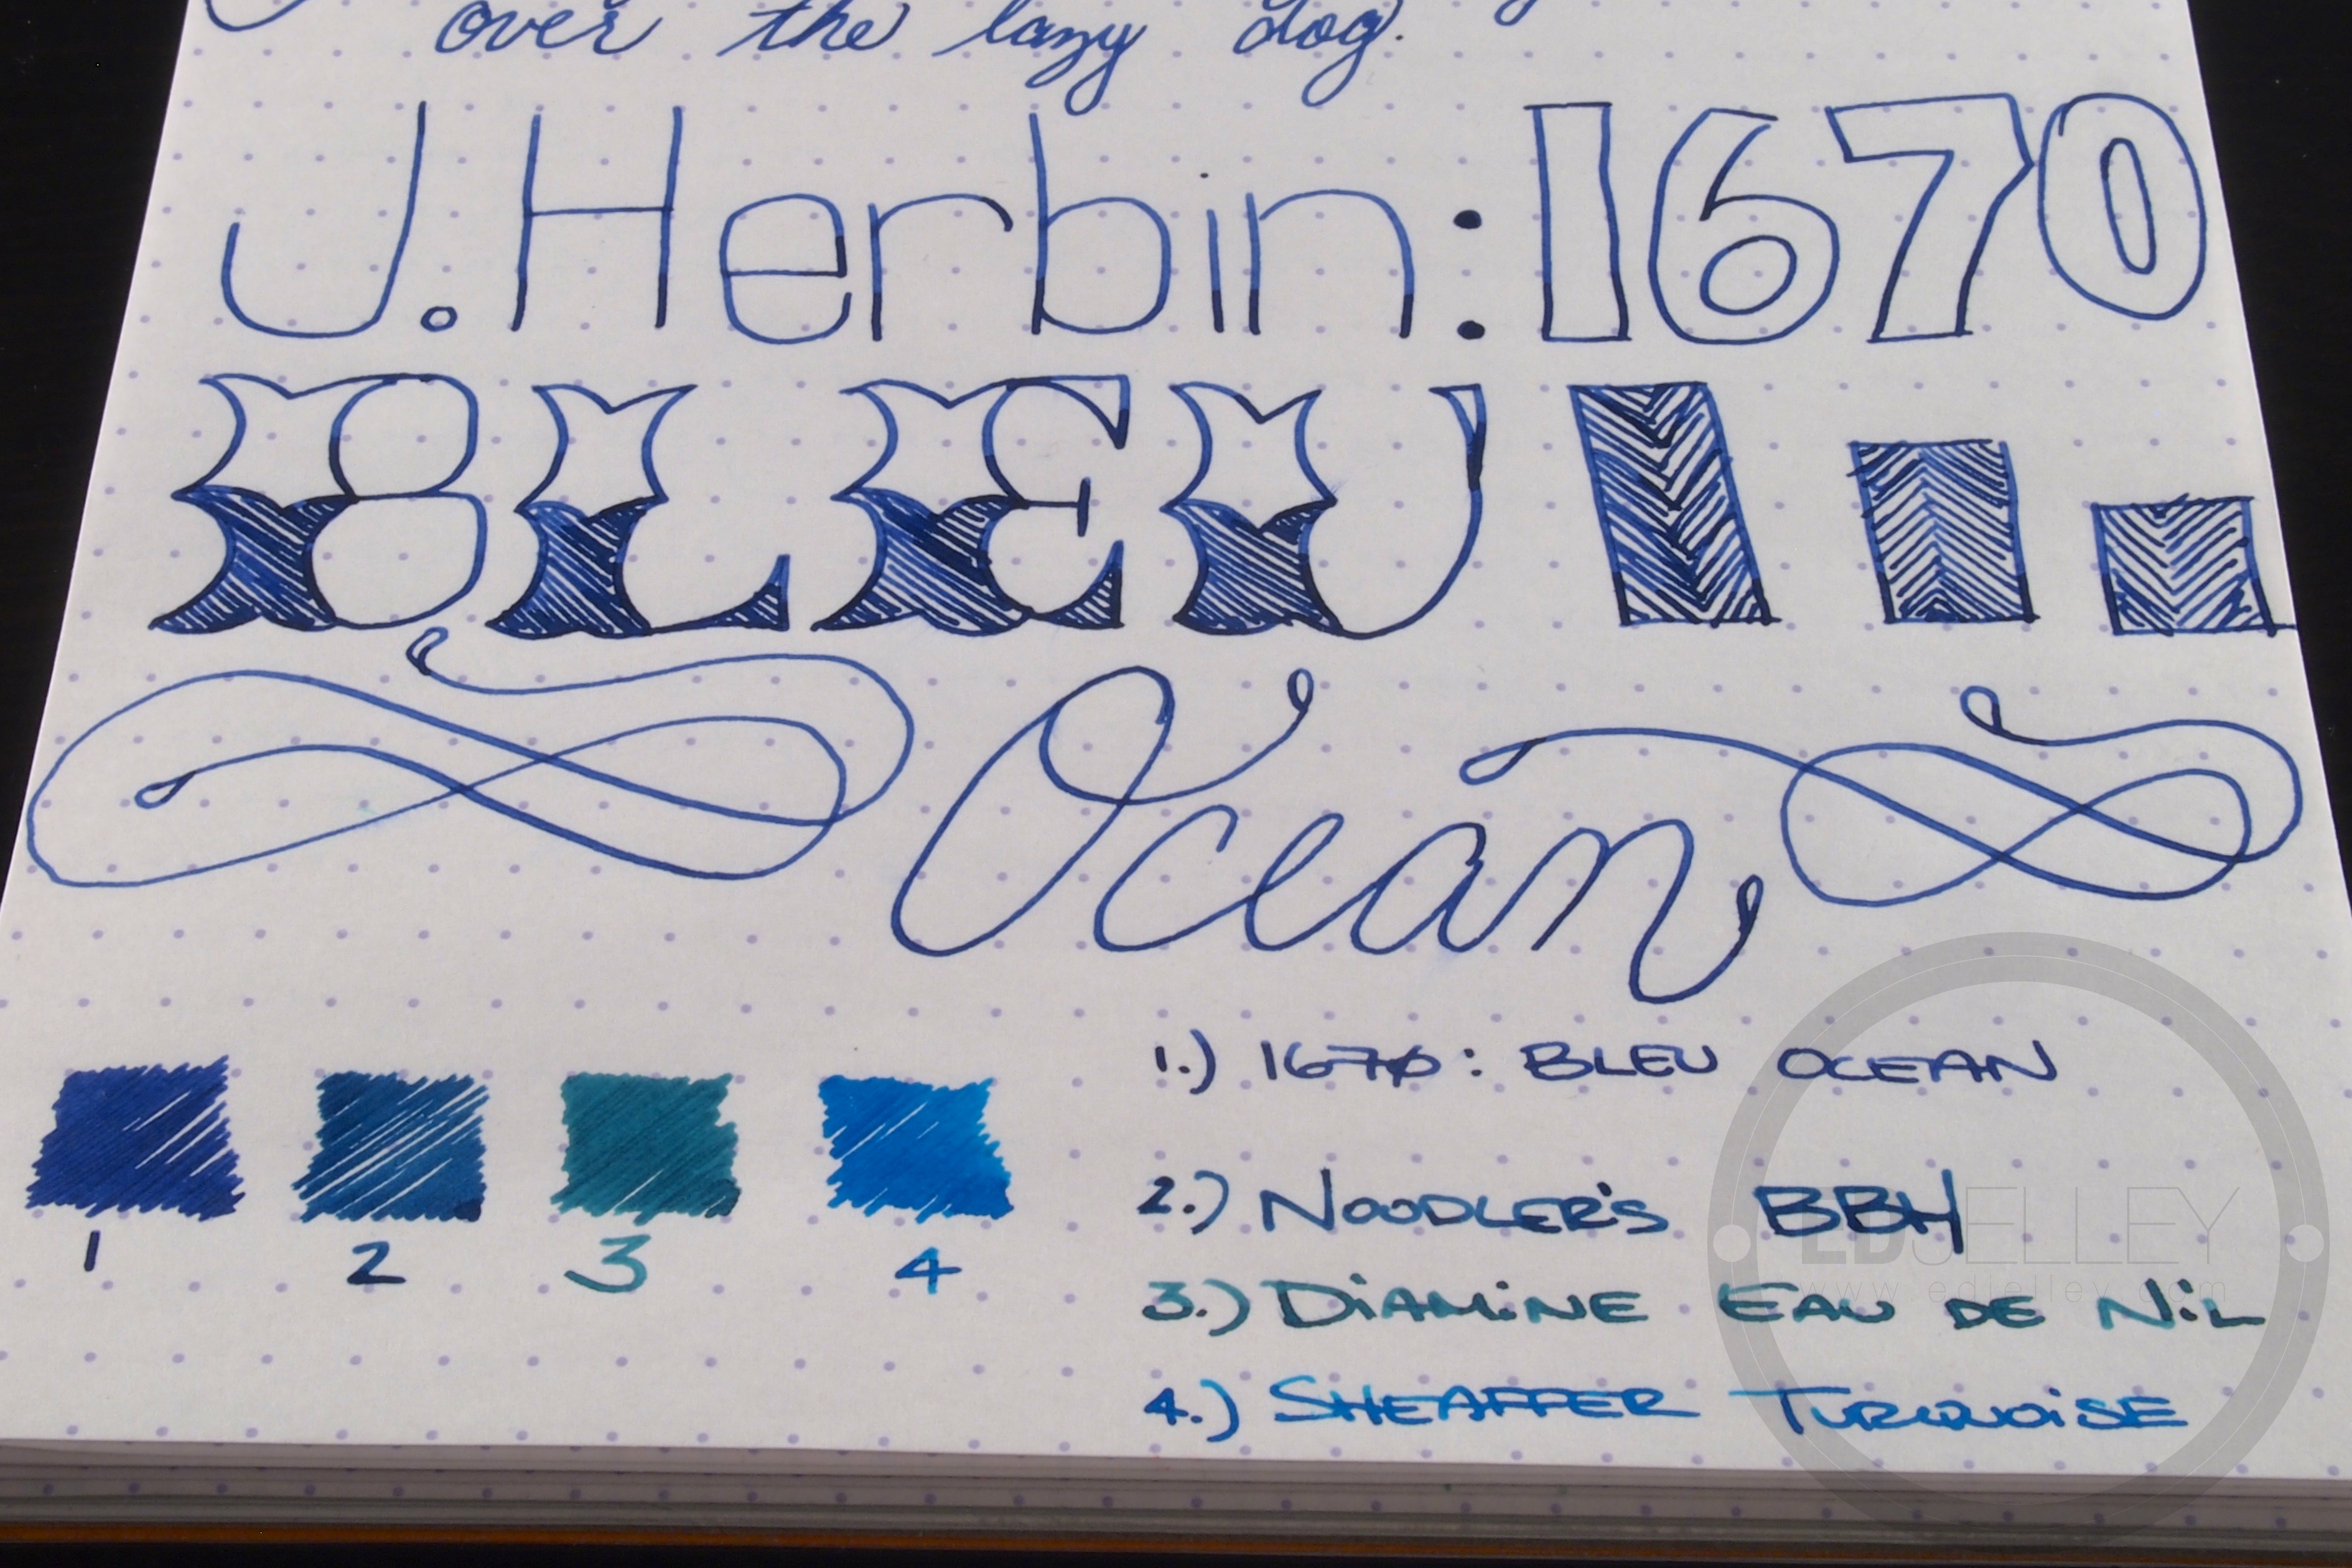 over the lazy dog.
J. Herbin: 1670
BLEU
Ocean
1 2 3 4
1.) 1670: BLEU OCEAN
2.) NOODLER'S BBH
3.) DiAMiNE EAU DE NiL
4.) SHEAFFER TURQUOiSE
EDJELLEY
www.edjelley.com